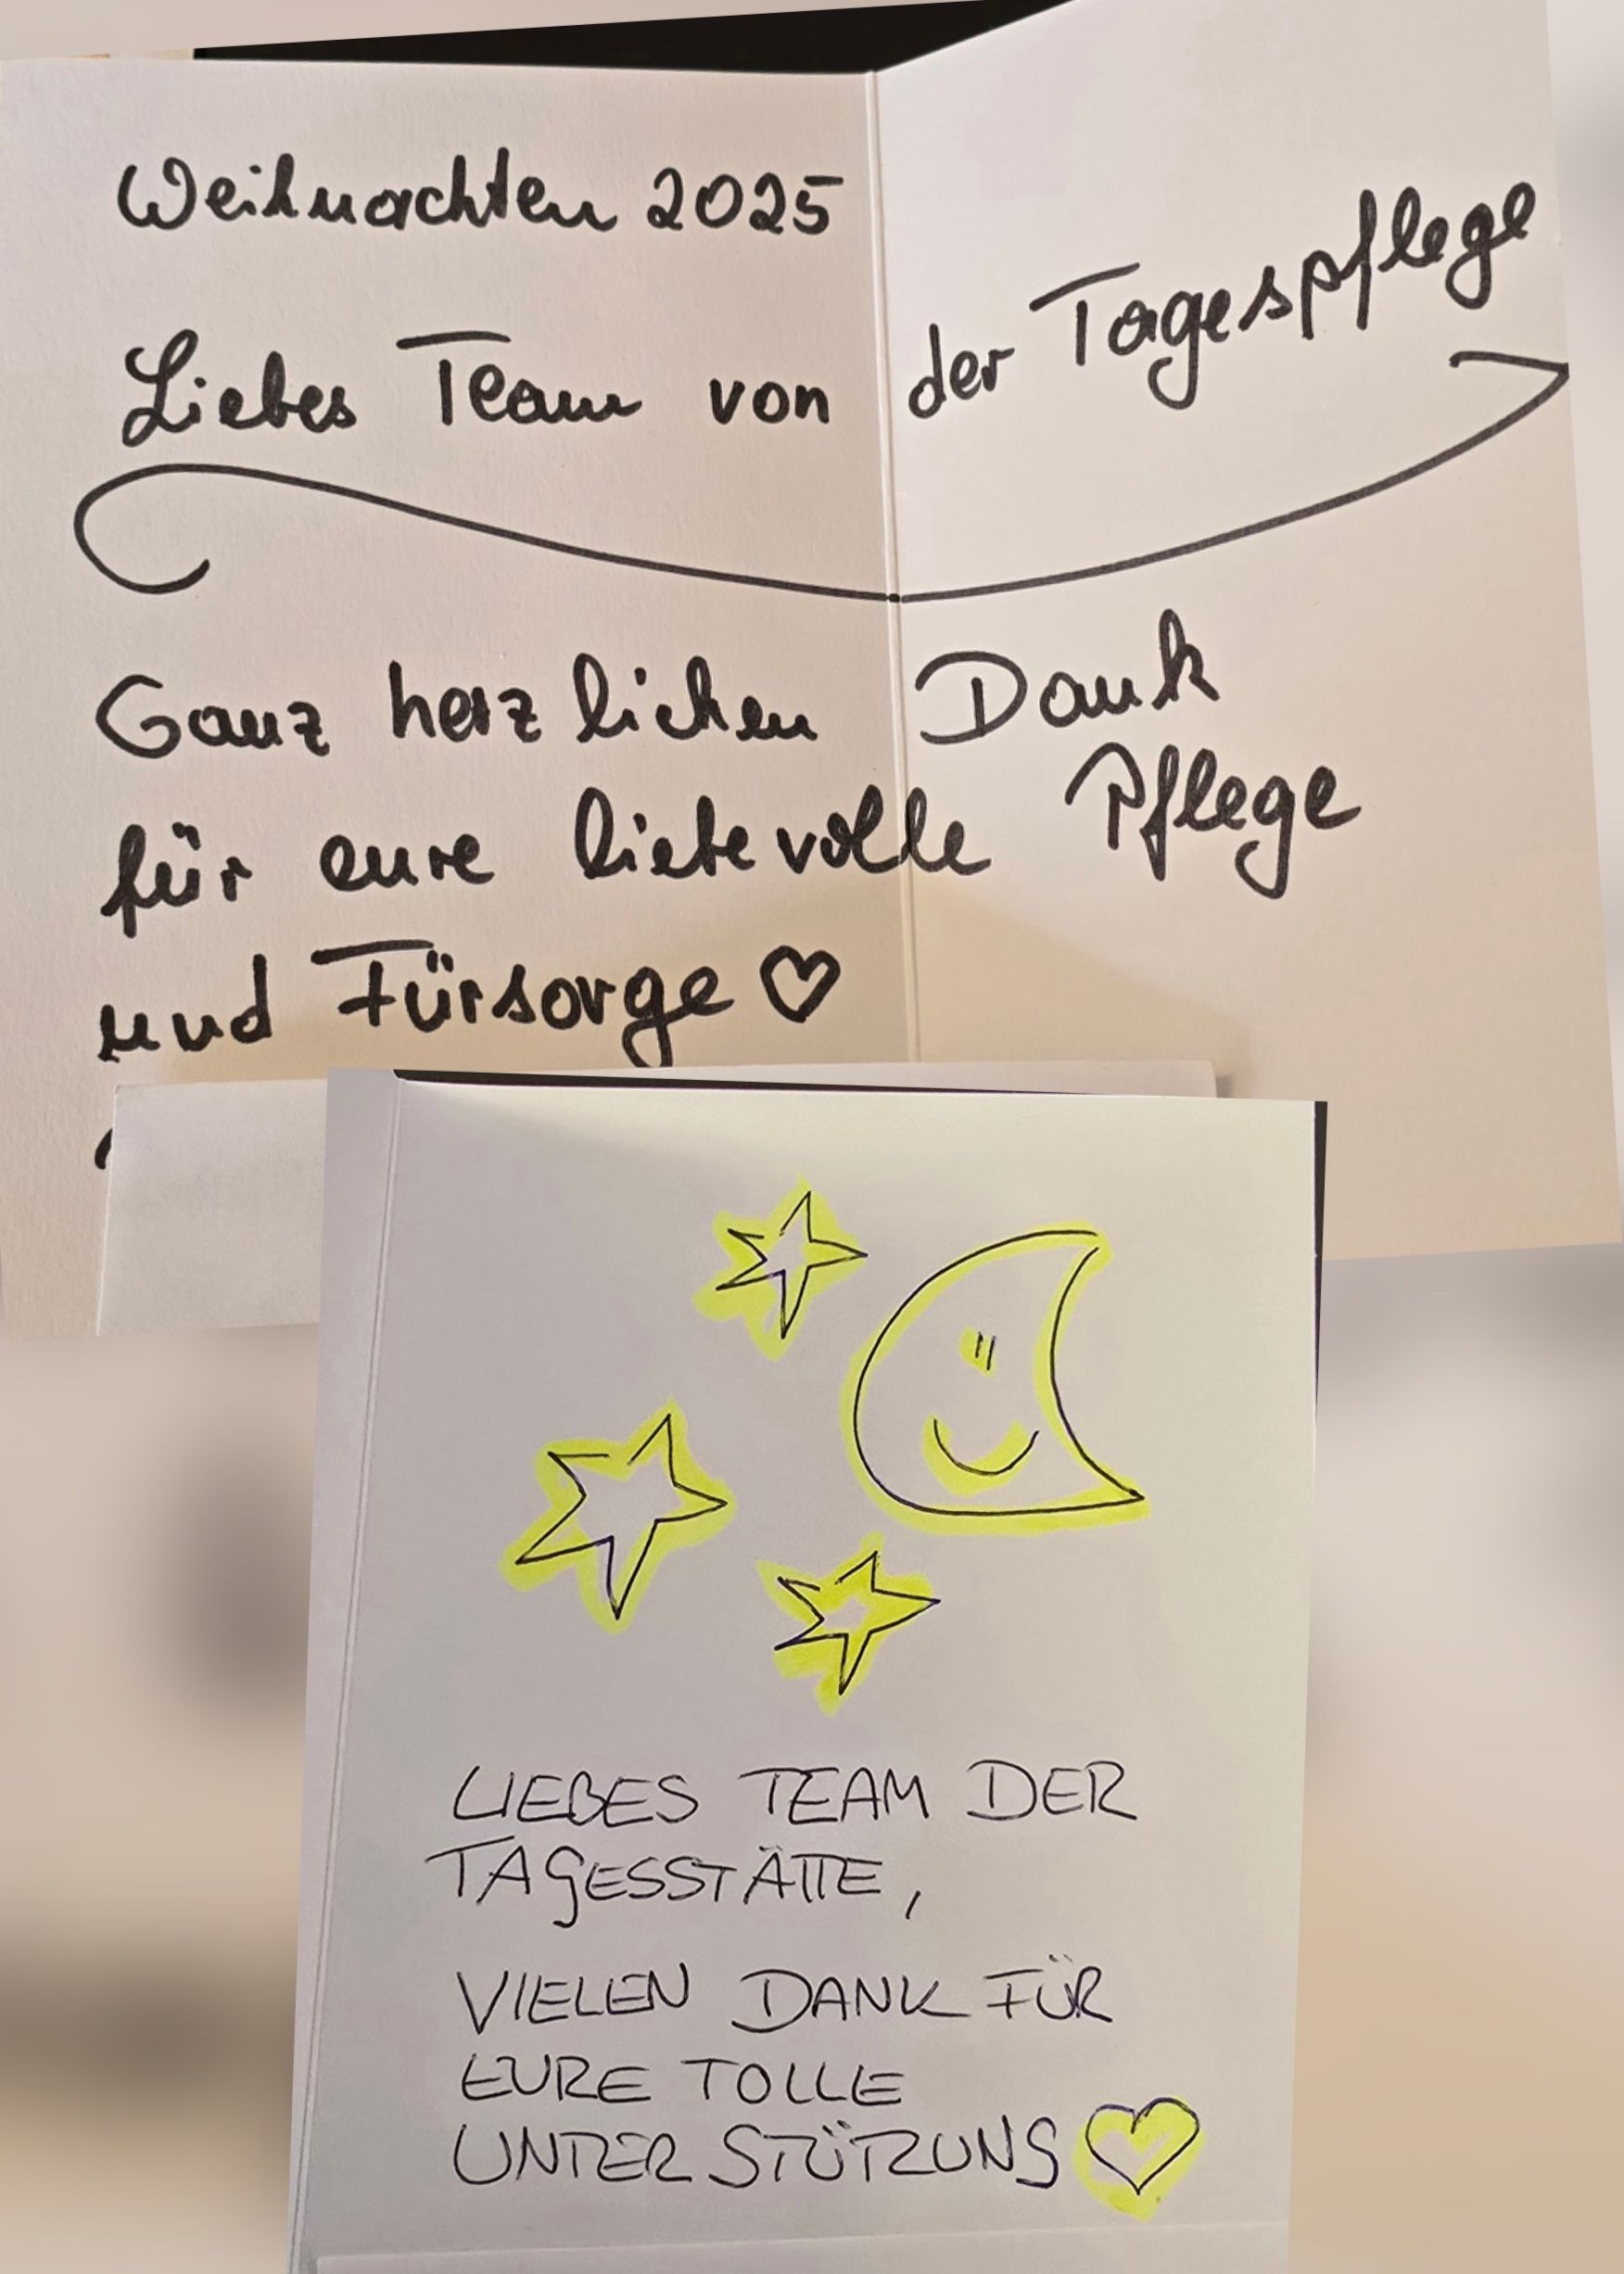 Weihnachten 2025
Liebes Team von der Tagespflege
Ganz herzlichen Dank
für eure liebevolle Pflege
und Fürsorge ♡
LIEBES TEAM DER
TAGESSTÄTTE,
VIELEN DANK FÜR
EURE TOLLE
UNTERSTÜTZUNG ♡